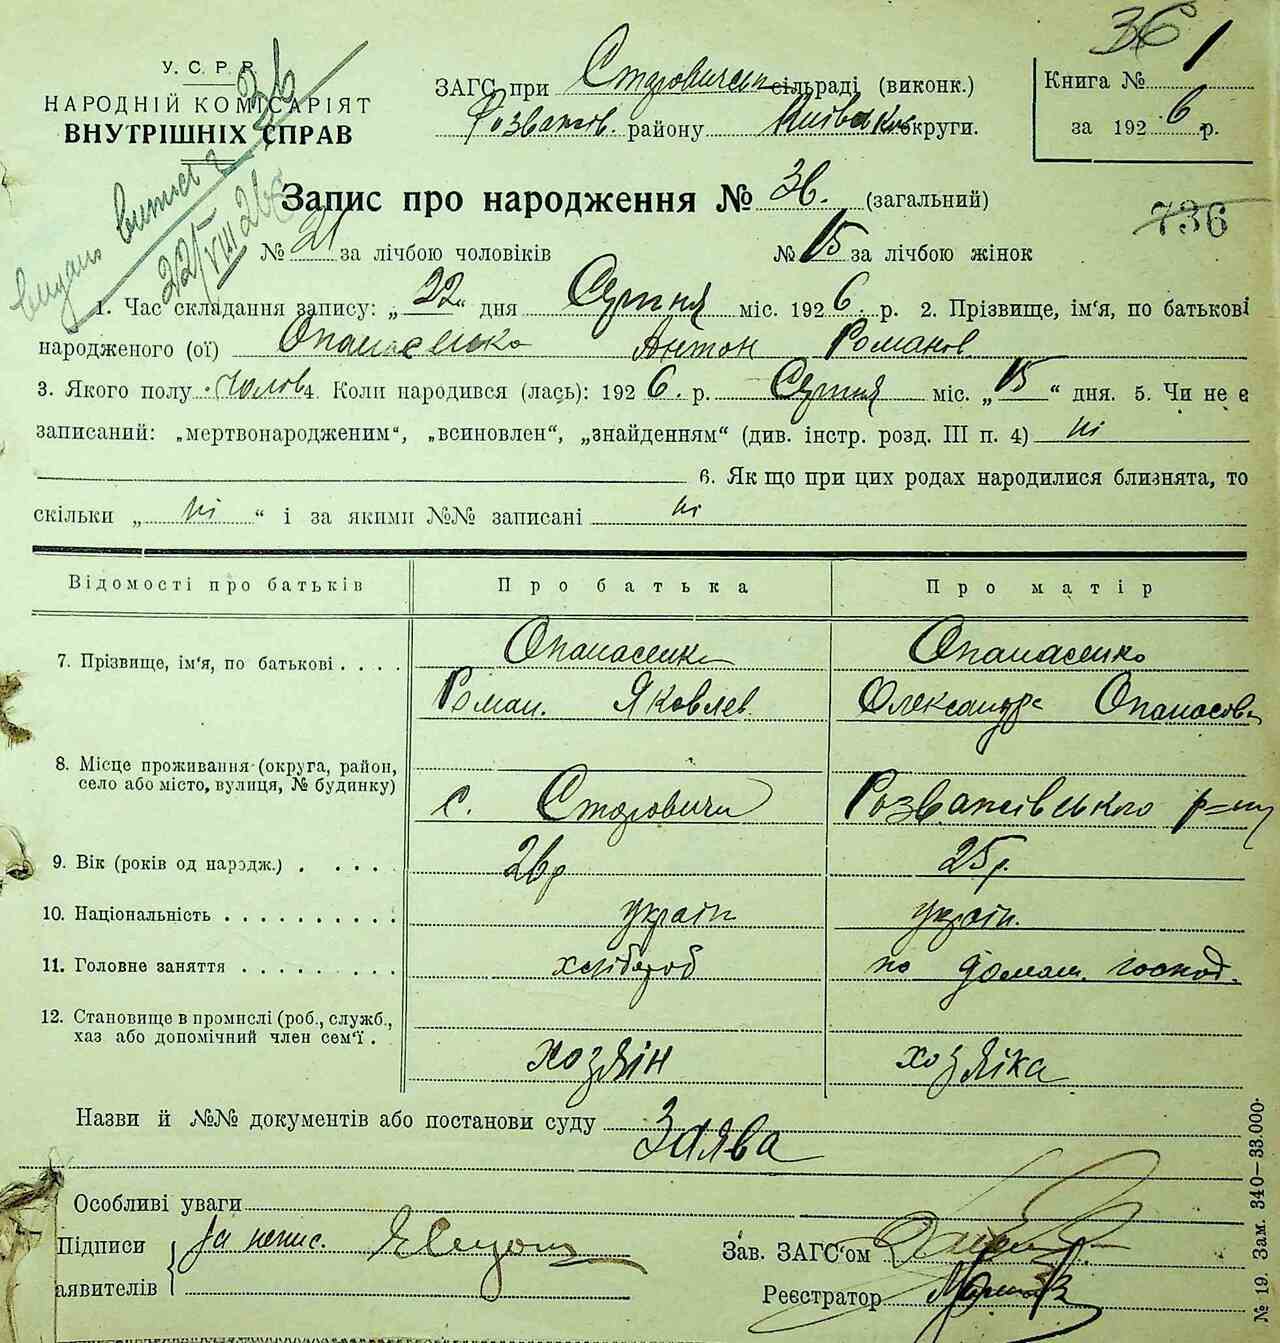 36 1
У. С. Р. Р.
НАРОДНІЙ КОМІСАРІЯТ
ВНУТРІШНІХ СПРАВ
ЗАГС при Старовичськ сільраді (виконк.)
Розважів. району Київської округи.
Книга №
за 1926 р.
видано виписку
22/VIII 26
Запис про народження № 36. (загальний)
736
№ 21 за лічбою чоловіків № 15 за лічбою жінок
1. Час складання запису: „22" дня Серпня міс. 1926. р. 2. Прізвище, ім'я, по батькові
народженого (ої) Опанасенко Антон Романов.
3. Якого полу Чолов 4. Коли народився (лась): 1926. р. Серпня міс. „15" дня. 5. Чи не є
записаний: „мертвонародженим", „всиновлен", „знайденням" (див. інстр. розд. III п. 4) ні
6. Як що при цих родах народилися близнята, то
скільки „ ні " і за якими №№ записані ні
Відомості про батьків Про батька Про матір
7. Прізвище, ім'я, по батькові . . . . Опанасенко Опанасенко
Роман. Яковлев. Олександра Опанасова
8. Місце проживання (округа, район,
село або місто, вулиця, № будинку) с. Старовичи Розважівського р-ну
9. Вік (років од нарэдж.) . . . . . 26р 25р.
10. Національність . . . . . . . . . . україн україн.
11. Головне заняття . . . . . . . . . хлібороб по домаш. господ.
12. Становище в промислі (роб., служб.,
хаз або допомічний член сем'ї . хозяїн хозяїка
Назви й №№ документів або постанови суду Заява
Особливі уваги
Підписи За непис.
аявителів
Зав. ЗАГС'ом
Реєстратор
№ 19. Зам. 340—33.000.